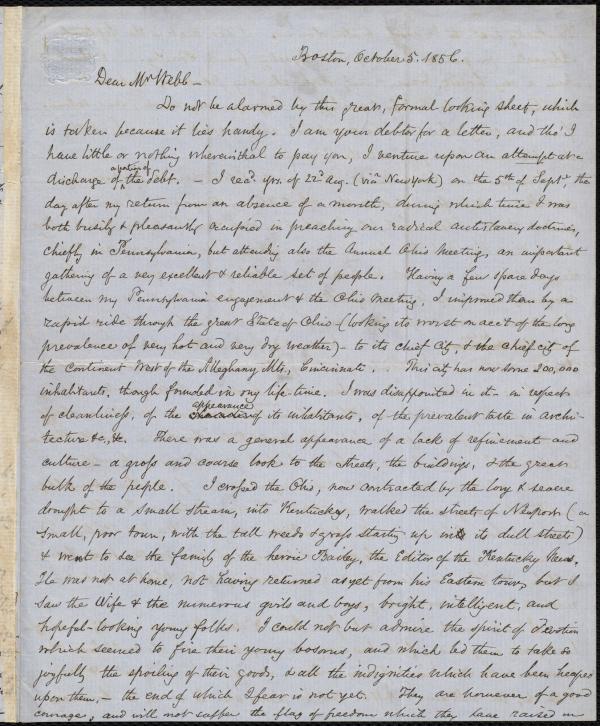 Boston, October 5. 1856.
Dear Mr Webb—
Do not be alarmed by this great, formal looking sheet, which
is taken because it lies handy. I am your debtor for a letter, and tho' I
have little or nothing wherewithal to pay you, I venture upon an attempt at a
discharge of a portion of the debt. — I recd. yrs. of 22d Aug. (via New York) on the 5th of Septr., the
day after my return from an absence of a month, during which time I was
both busily & pleasantly occupied in preaching our radical antislavery doctrines,
chiefly in Pennsylvania, but attending also the Annual Ohio Meeting, an important
gathering of a very excellent & reliable set of people. Having a few spare days
between my Pennsylvania engagement & the Ohio Meeting, I improved them by a
rapid ride through the great State of Ohio (looking its worst on acct of the long
prevalence of very hot and very dry weather) — to its chief city, & the chief city of
the continent West of the Alleghany Mts, Cincinnati. This city has now some 200,000
inhabitants, though founded in my life-time. I was disappointed in it — in respect
of cleanliness, of the appearance of its inhabitants, of the prevalent taste in archi-
tecture &c., &c. There was a general appearance of a lack of refinement and
culture — a gross and coarse look to the streets, the buildings, & the great
bulk of the people. I crossed the Ohio, now contracted by the long & severe
drought to a small stream, into Kentucky, walked the streets of Newport (a
small, poor town, with the tall weeds & grass starting up in its dull streets)
& went to see the family of the heroic Bailey, the Editor of the Kentucky News.
He was not at home, not having returned as yet from his Eastern tour, but I
saw the Wife & the numerous girls and boys, bright, intelligent, and
hopeful-looking young folks. I could not but admire the spirit of devotion
which seemed to fire their young bosoms, and which led them to take so
joyfully the spoiling of their goods, & all the indignities which have been heaped
upon them, — the end of which I fear is not yet. They are however of a good
courage, and will not suffer the flag of freedom which they have raised in